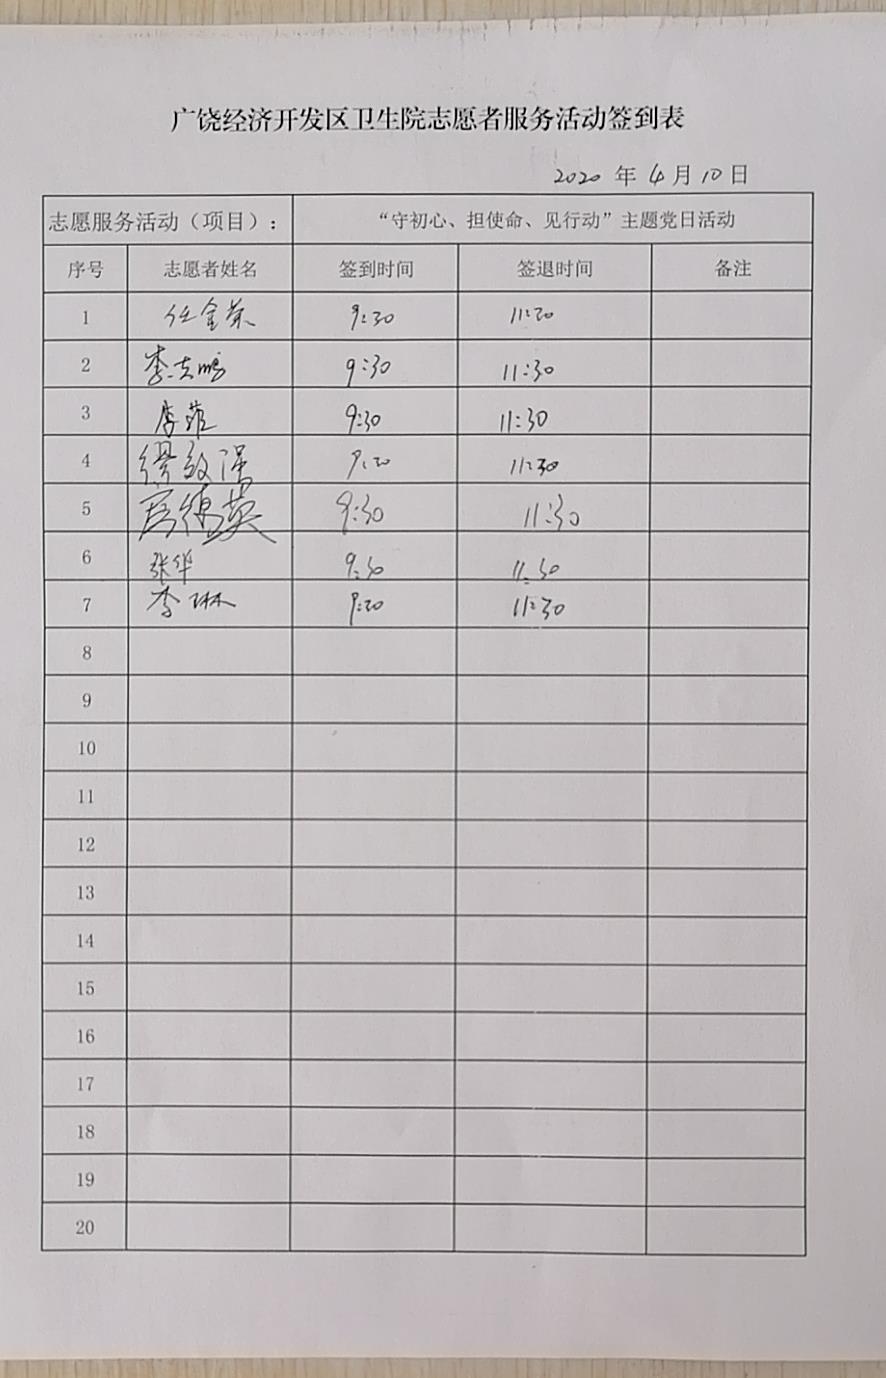 广饶经济开发区卫生院志愿者服务活动签到表
2020 年 4 月 10 日
志愿服务活动（项目）： “守初心、担使命、见行动”主题党日活动
序号 志愿者姓名 签到时间 签退时间 备注
1 任金荣 9:30 11:30
2 李志鹏 9:30 11:30
3 李菲 9:30 11:30
4 缪致强 9:30 11:30
5 英 9:30 11:30
6 张华 9:30 11:30
7 李琳 9:30 11:30
8
9
10
11
12
13
14
15
16
17
18
19
20